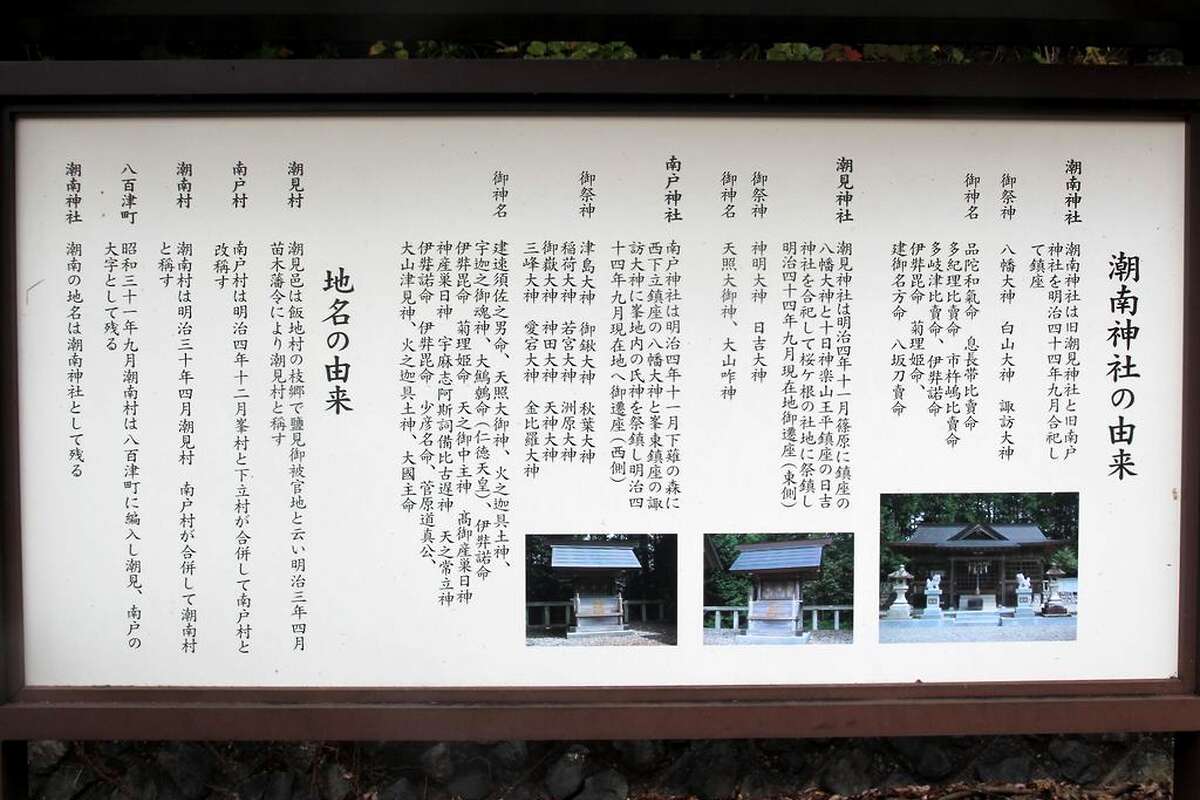 潮南神社の由来
潮南神社　潮南神社は旧潮見神社と旧南戸
神社を明治四十四年九月合祀し
て鎮座
御祭神　八幡大神　白山大神　諏訪大神
御神名　品陀和氣命　息長帯比賣命
多紀理比賣命、市杵嶋比賣命
多岐津比賣命、伊弉諾命
伊弉毘命　菊理姫命、
建御名方命　八坂刀賣命
潮見神社　潮見神社は明治四年十一月篠原に鎮座の
八幡大神と十日神楽山王平鎮座の日吉
神社を合祀して桜ケ根の社地に祭鎮し
明治四十四年九月現在地御遷座（東側）
御祭神　神明大神　日吉大神
御神名　天照大御神、大山咋神
南戸神社　南戸神社は明治四年十一月下薙の森に
西下立鎮座の八幡大神と峯東鎮座の諏
訪大神に峯地内の氏神を祭鎮し明治四
十四年九月現在地へ御遷座（西側）
御祭神　津島大神　御鍬大神　秋葉大神
稲荷大神　若宮大神　洲原大神
御嶽大神　神田大神　天神大神
三峰大神　愛宕大神　金比羅大神
御神名　建速須佐之男命、天照大御神、火之迦具土神、
宇迦之御魂神、大鷦鷯命（仁徳天皇）、伊弉諾命
伊弉毘命　菊理姫命　天之御中主神　高御産巣日神
神産巣日神　宇麻志阿斯訶備比古遅神　天之常立神
伊弉諾命　伊弉毘命、少彦名命、菅原道真公、
大山津見神、火之迦具土神、大國主命
地名の由来
潮見村　潮見邑は飯地村の枝郷で鹽見御被官地と云い明治三年四月
苗木藩令により潮見村と称す
南戸村　南戸村は明治四年十二月峯村と下立村が合併して南戸村と
改称す
潮南村　潮南村は明治三十年四月潮見村　南戸村が合併して潮南村
と称す
八百津町　昭和三十一年九月潮南村は八百津町に編入し潮見、南戸の
大字として残る
潮南神社　潮南の地名は潮南神社として残る